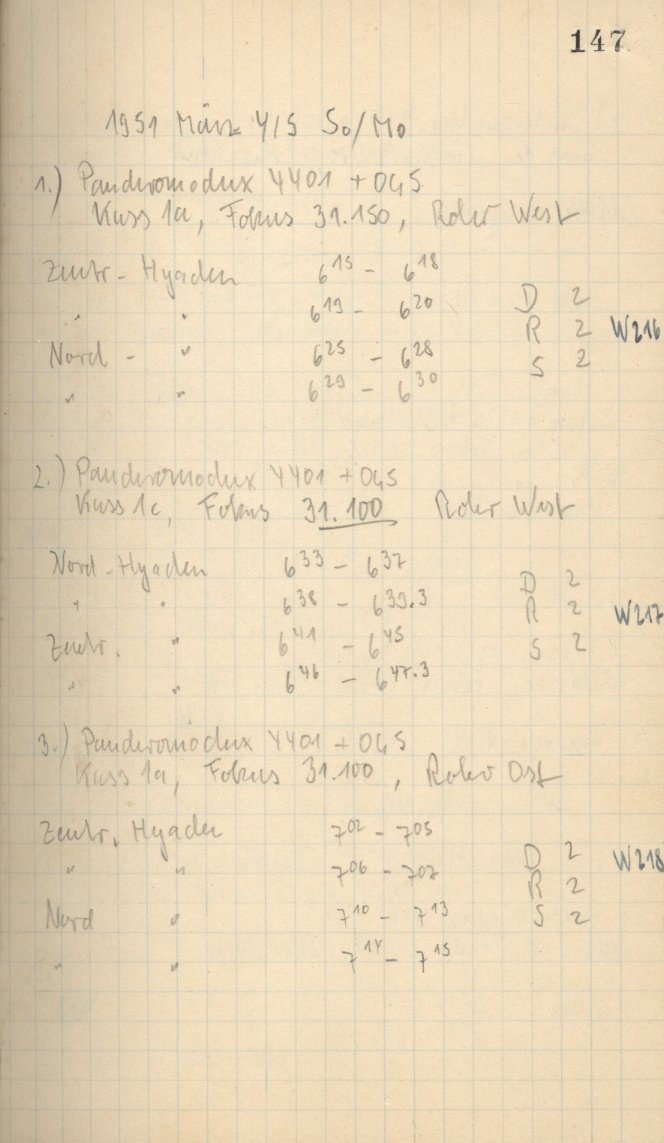 147
1951 März 4/5 So/Mo
1.) Panchromodux 4401 + OG5
Kass 1a, Fokus 31.150, Rohr West
Zentr - Hyaden 6 15 - 6 18
" " 6 19 - 6 20 D 2
R 2 W216
Nord - " 6 25 - 6 28 S 2
" " 6 29 - 6 30
2.) Panchromodux 4401 + OG5
Kass 1c, Fokus 31.100 Rohr West
Nord - Hyaden 6 33 - 6 37 D 2
" " 6 38 - 6 39.3 R 2 W217
Zentr. " 6 41 - 6 45 S 2
" " 6 46 - 6 47.3
3.) Panchromodux 4401 + OG5
Kass 1a, Fokus 31.100, Rohr Ost
Zentr. Hyaden 7 02 - 7 05 D 2 W218
" " 7 06 - 7 07 R 2
Nord " 7 10 - 7 13 S 2
" " 7 14 - 7 15